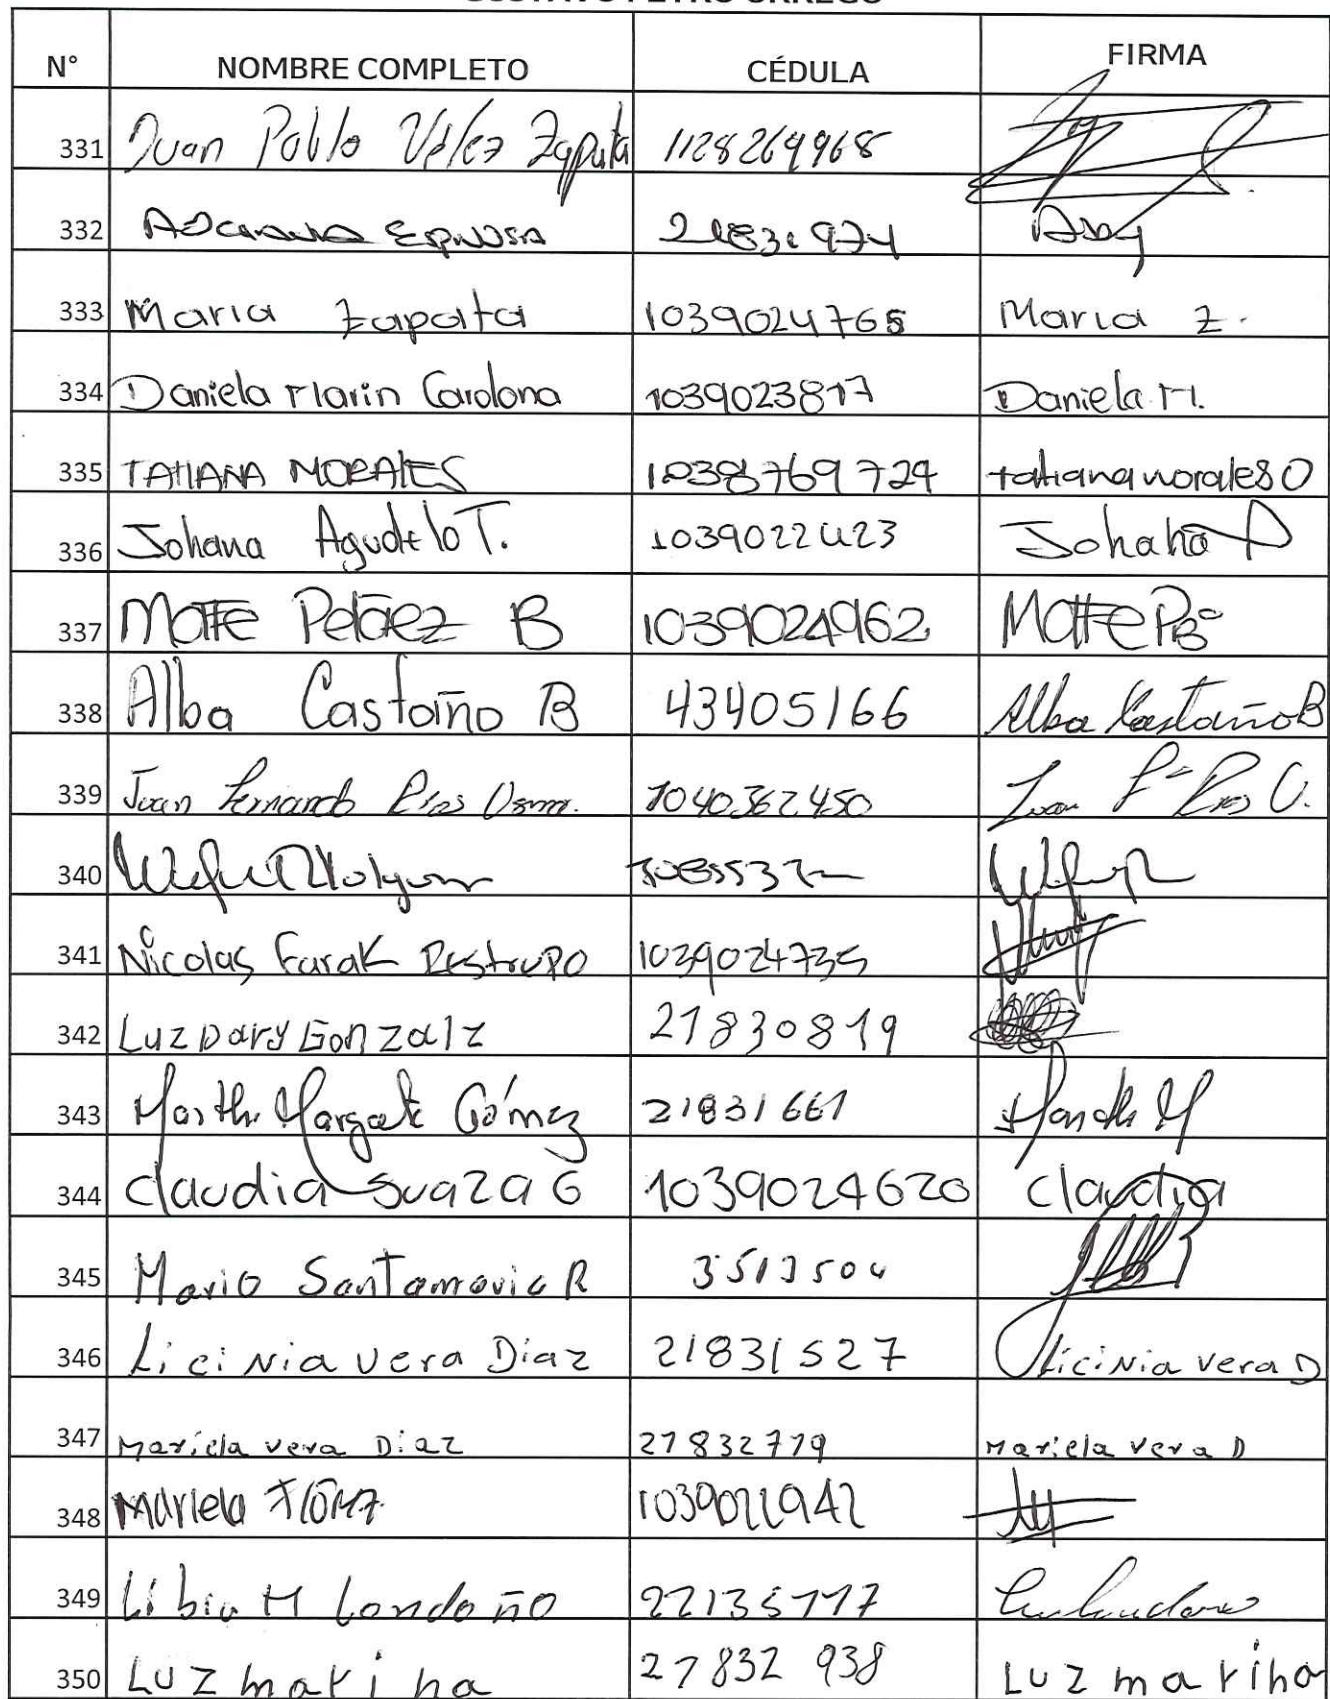 N° NOMBRE COMPLETO CÉDULA FIRMA
331 Juan Pablo Vélez Zapata 1128269968
332 Adriana Espinosa
333 Maria Zapata 1039024765 Maria Z.
334 Daniela Marin Cardona 1039023817 Daniela M.
335 TATIANA MORALES 1038769724 tatiana morales O
336 Johana Agudelo T. 1039022423 Johana A
337 Matte Peláez B 1039024962 Matte PB
338 Alba Castaño B 43405166 Alba Castaño B
339 Juan Fernando Rios 1040362450 Juan F Rios O.
340
341 Nicolas Farak Restrepo 1039024735
342 Luz Dary Gonzalz 21830819
343 Martha Gómez 21831661
344 Claudia Suaza G 1039024620 Claudia
345 Mario Santamaria R 3513504
346 LiciNia vera Diaz 21831527 LiciNia vera D
347 Mariela vera Diaz 21832719 Mariela vera D
348 Mariela 1039022942
349 Libia M Londoño 22135777
350 LUZ marina 21832 938 LUZ marina